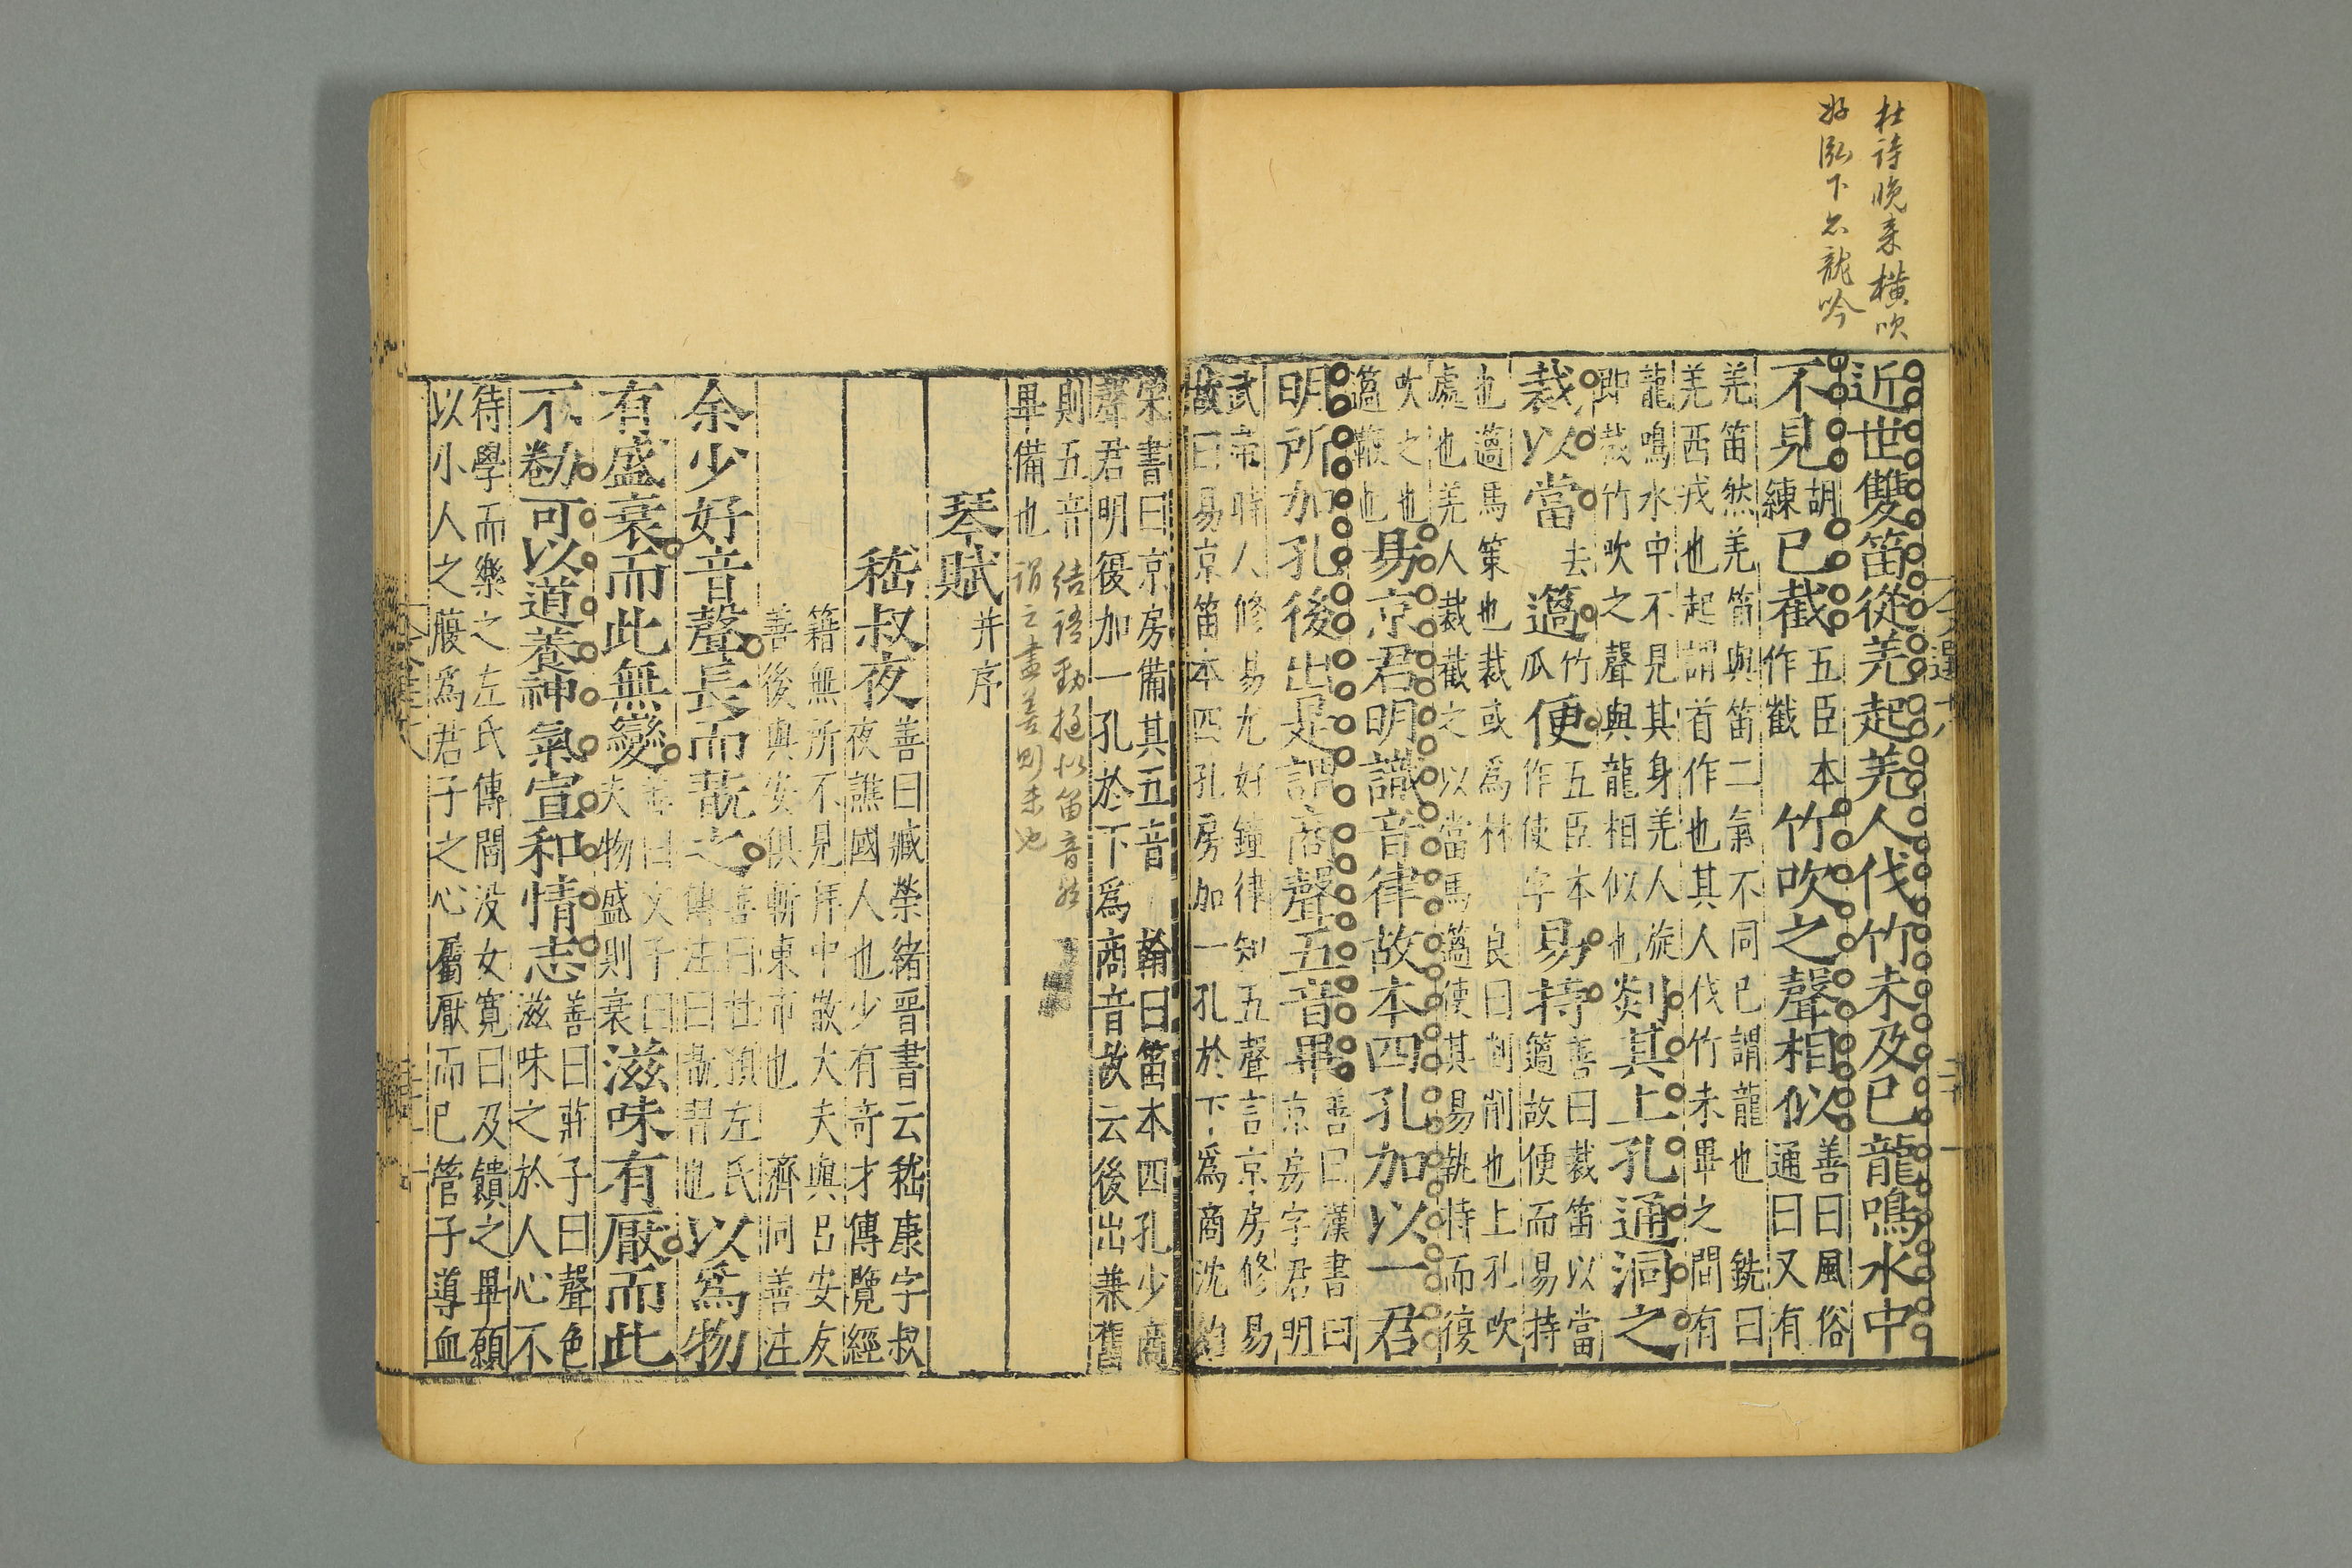 杜詩晚来横吹
好泓下亦龍吟
近世雙笛從羌起羌人伐竹未及已龍鳴水中
不見胡練已截五臣本作戳竹吹之聲相似善曰風俗通曰又有
羌笛然羌笛與笛二氣不同已謂龍也 銑曰
羌西戎也起謂首作也其人伐竹未畢之間有
龍鳴水中不見其身羌人旋即截竹吹之聲與龍相似也剡其上孔通洞之
裁以當去薖竹瓜便五臣本作使字易持善曰裁笛以當簻故便而易持
也簻馬策也裁或爲林 良曰剡削也上孔吹
處也羌人裁截之以當馬簻使其易執持而復
吹之也簻鞭也易京君明識音律故本四孔加以一君
明所加孔後出是謂商聲五音畢善曰漢書曰京房字君明
武帝時人修易尤好鐘律知五聲言京房修易
故曰易京笛本四孔房加一孔於下爲商沈約
宋書曰京房備其五音 翰曰笛本四孔少商
聲君明復加一孔於下爲商音故云後出兼舊
則五音畢備也
結語動極似笛音
謂之盡善則未也
琴賦并序
嵇叔夜善曰臧榮緒晉書云嵇康字叔夜譙國人也少有奇才博覽經
籍無所不見拜中散大夫與呂安友
善後與安俱斬東市也 濟同善注
余少好音聲長而翫之善曰杜預左氏傳注曰翫習也以爲物
有盛衰而此無變善曰文子曰夫物盛則衰滋味有厭而此
不勌卷可以道養神氣宣和情志善曰莊子曰聲色滋味之於人心不
待學而樂之左氏傳閻没女寬曰及饋之畢願
以小人之腹爲君子之心屬厭而已管子導血